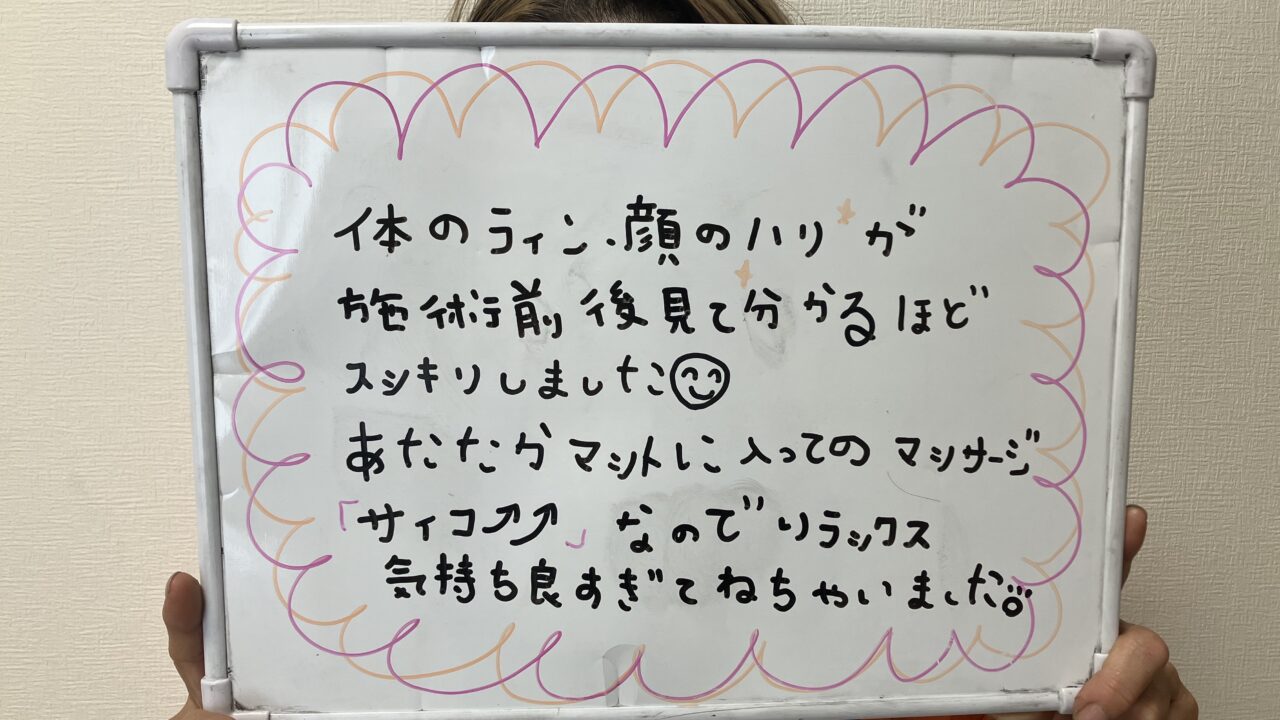 体のライン、顔のハリが
施術前後見て分かるほど
スッキリしました
あたたかマットに入ってのマッサージ
「サイコ⤴⤴」なのでリラックス
気持ち良すぎてねちゃいました。